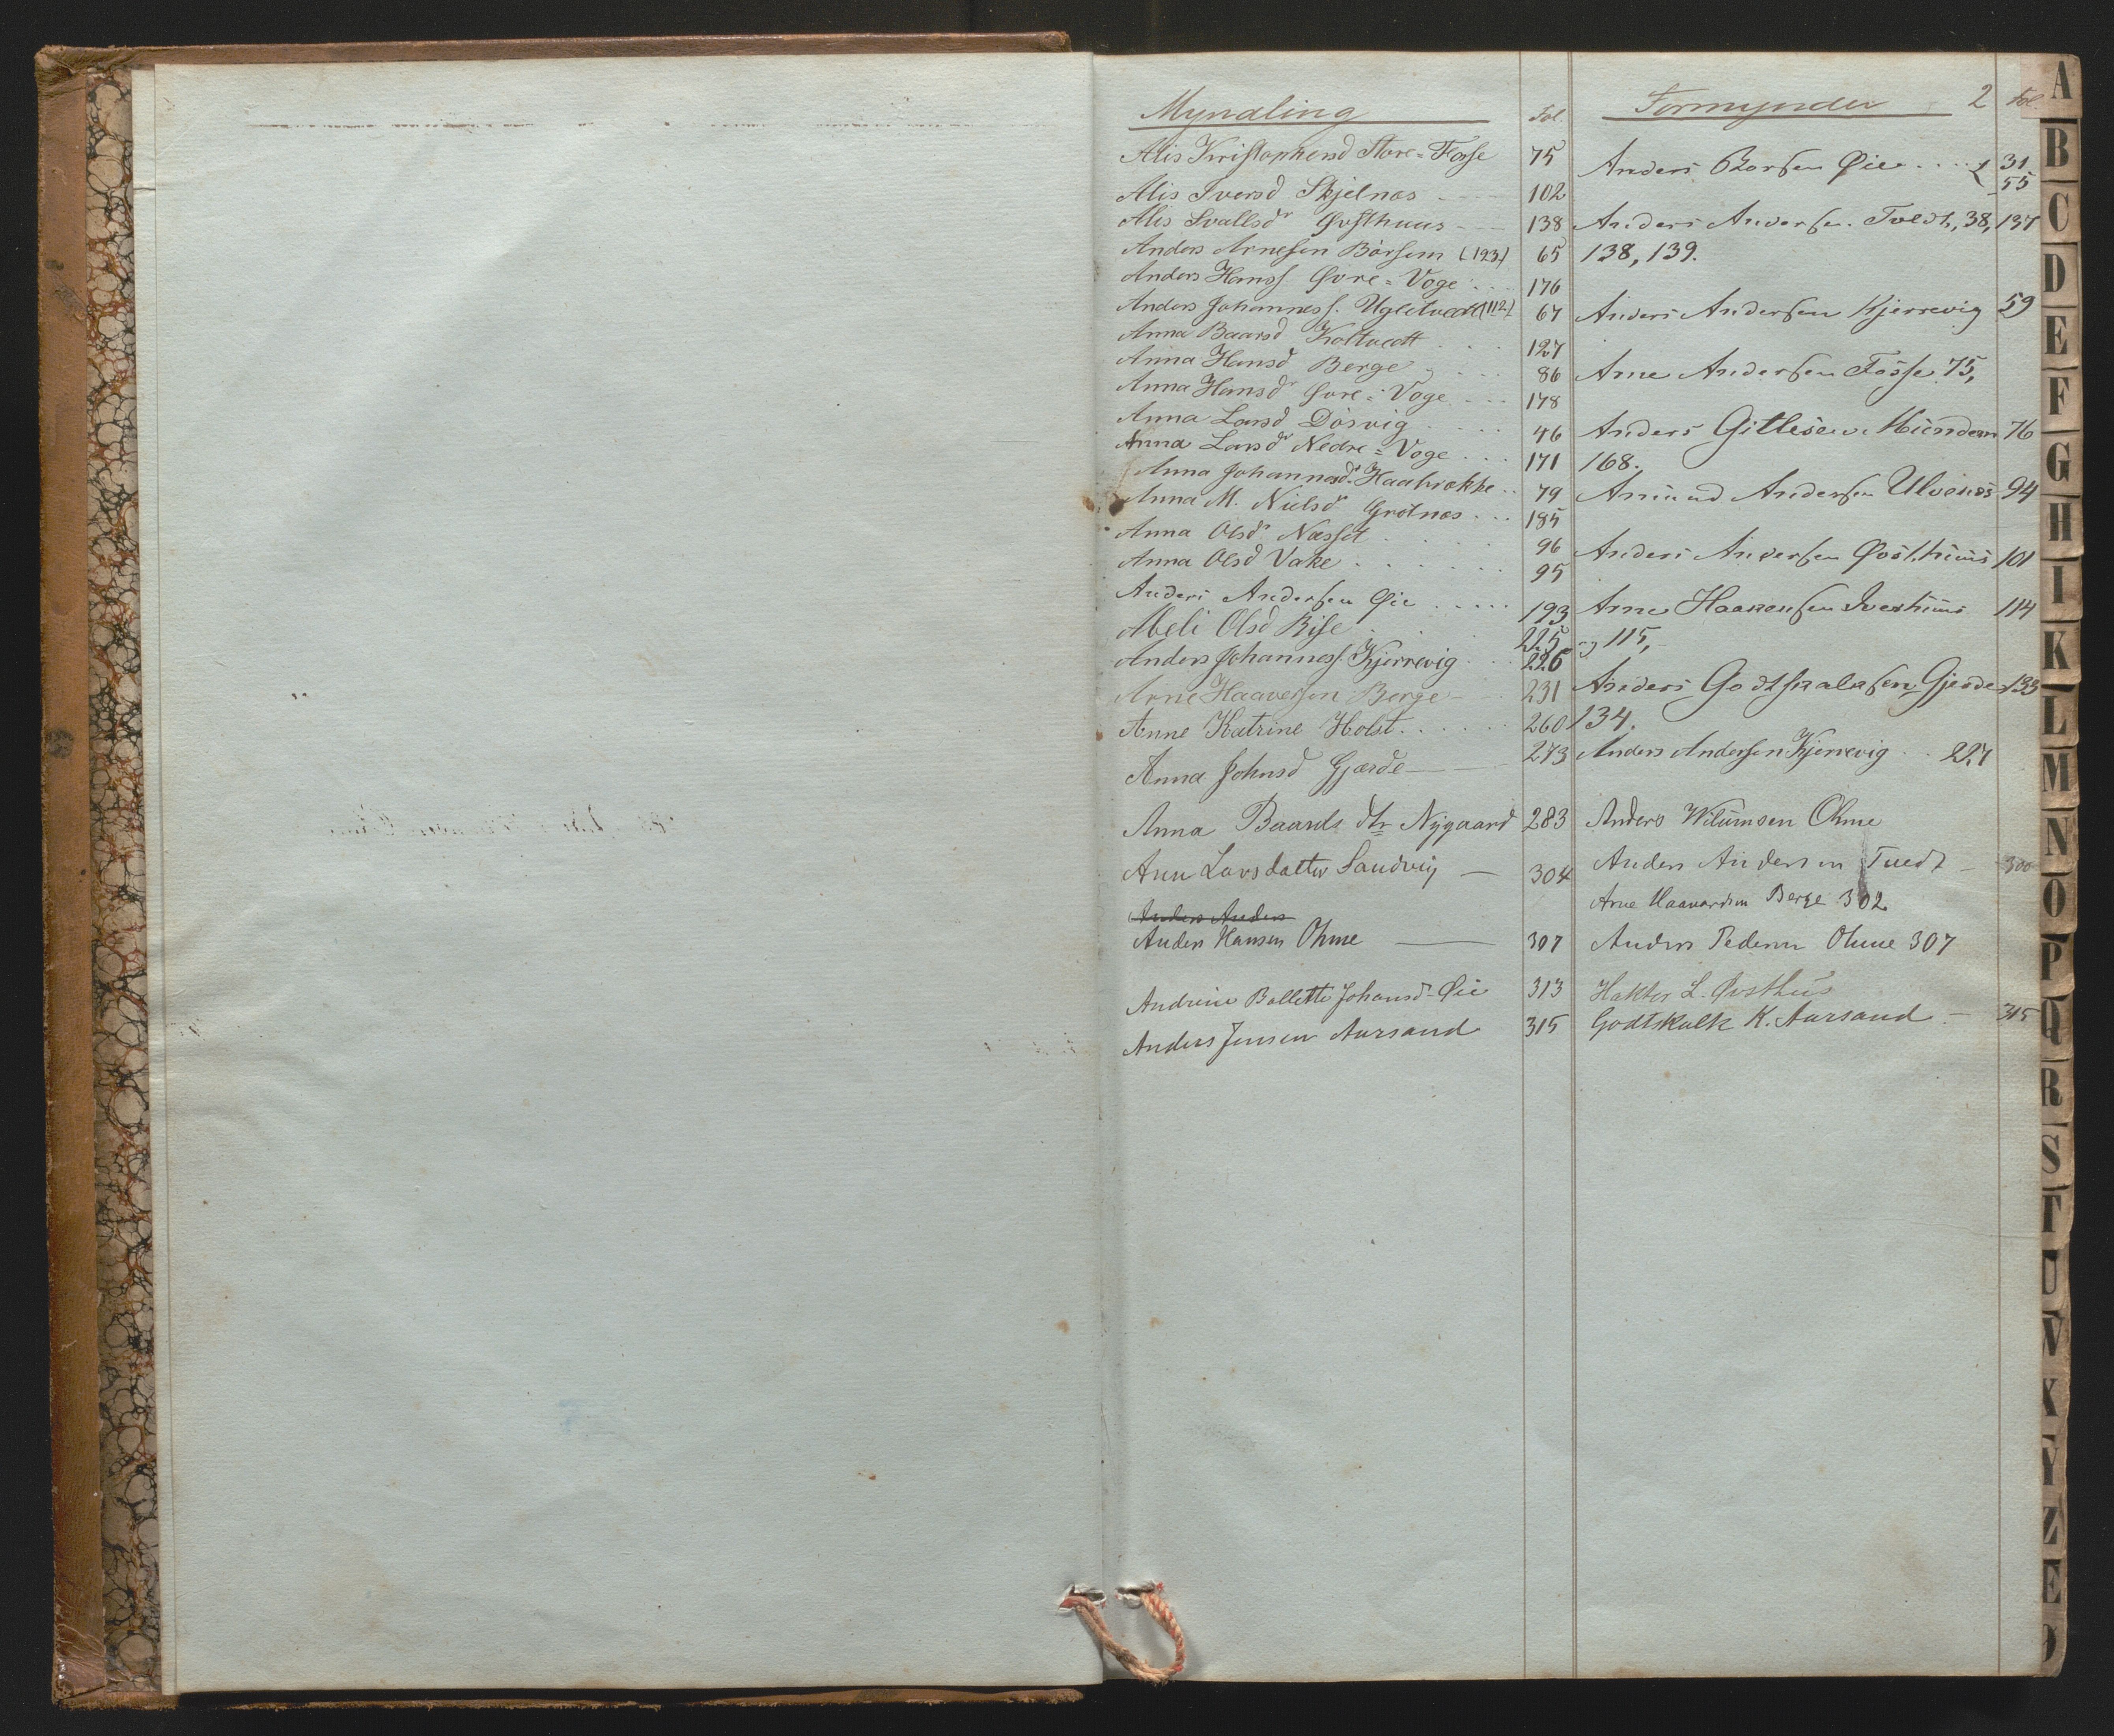 Myndling
Fol.
Alis Kristophersd Store=Fosse 75
Alis Iversd Skjelnæs 102
Alis Svallsdr Øvsthuus 138
Anders Arnesen Børsem (123) 65
Anders Hanss Øvre=Vage 176
Anders Johanness. Ugletvedt (112) 67
Anna Baarsd Koltvedt 127
Anna Hansd Berge 86
Anna Hansdr Øvre=Vage 178
Anna Larsd Dösvig 46
Anna Larsdr Nedre=Vage 171
Anna Johannesdr 79
Anna M. Nielsdr Grotnæs 185
Anna Olsdr Næsset 96
Anna Olsd Vake 95
Anders Andersen Øie 193
Abeli Olsd Rise 225
Anders Johanness. Kjerrevig 226
Arne Haaversen Berge 231
Anne Katrine Holst 260
Anna Johnsd Gjærde 273
Anna Baards dtr Nygaard 283
Ann Larsdatter Sandvig 304
Anders Anders
Anders Hansen Ohme 307
Andrine Bollette Johansd Øie 313
Anders Jensen Aarsand 315
Formynder
2 Fol
Anders Øie 31
55
Anders Andersen Tvedt, 38, 137
138, 139.
Anders Andersen Kjerrevig 59
Arne Andersen Fosse 75,
Anders Gitlesen Mundem 76
168.
Amund Andersen Ulvenæs 94
Anders Andersen Øvsthuus 101
Arne Haavesen 114
og 115,
Anders Godtskalksen Gjerde 133
134.
Anders Andersen Kjerrevig 227
Anders Wilumsen Ohme
Anders Andersen Tvedt 300
Arne Haavardsen Berge 302
Anders Pedersen Ohme 307
Haktor L. Øvsthus
Godtskalk K. Aarsand 315
A
B
C
D
E
F
G
H
I
K
L
M
N
O
P
Q
R
S
T
U
V
X
Y
Z
Æ
Ø